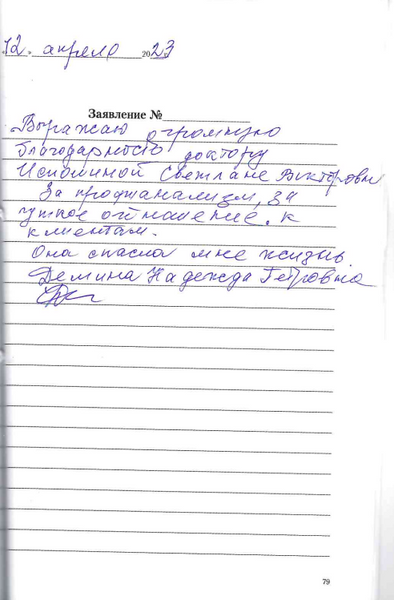 "12" апреля 2023 г.
Заявление №
Выражаю огромную
благодарность доктору
Исполиной Светлане Викторовне
За профанализм, за
чуткое отношение к
клиентам.
Она спасла мне жизнь.
Демина Надежда Петровна
79